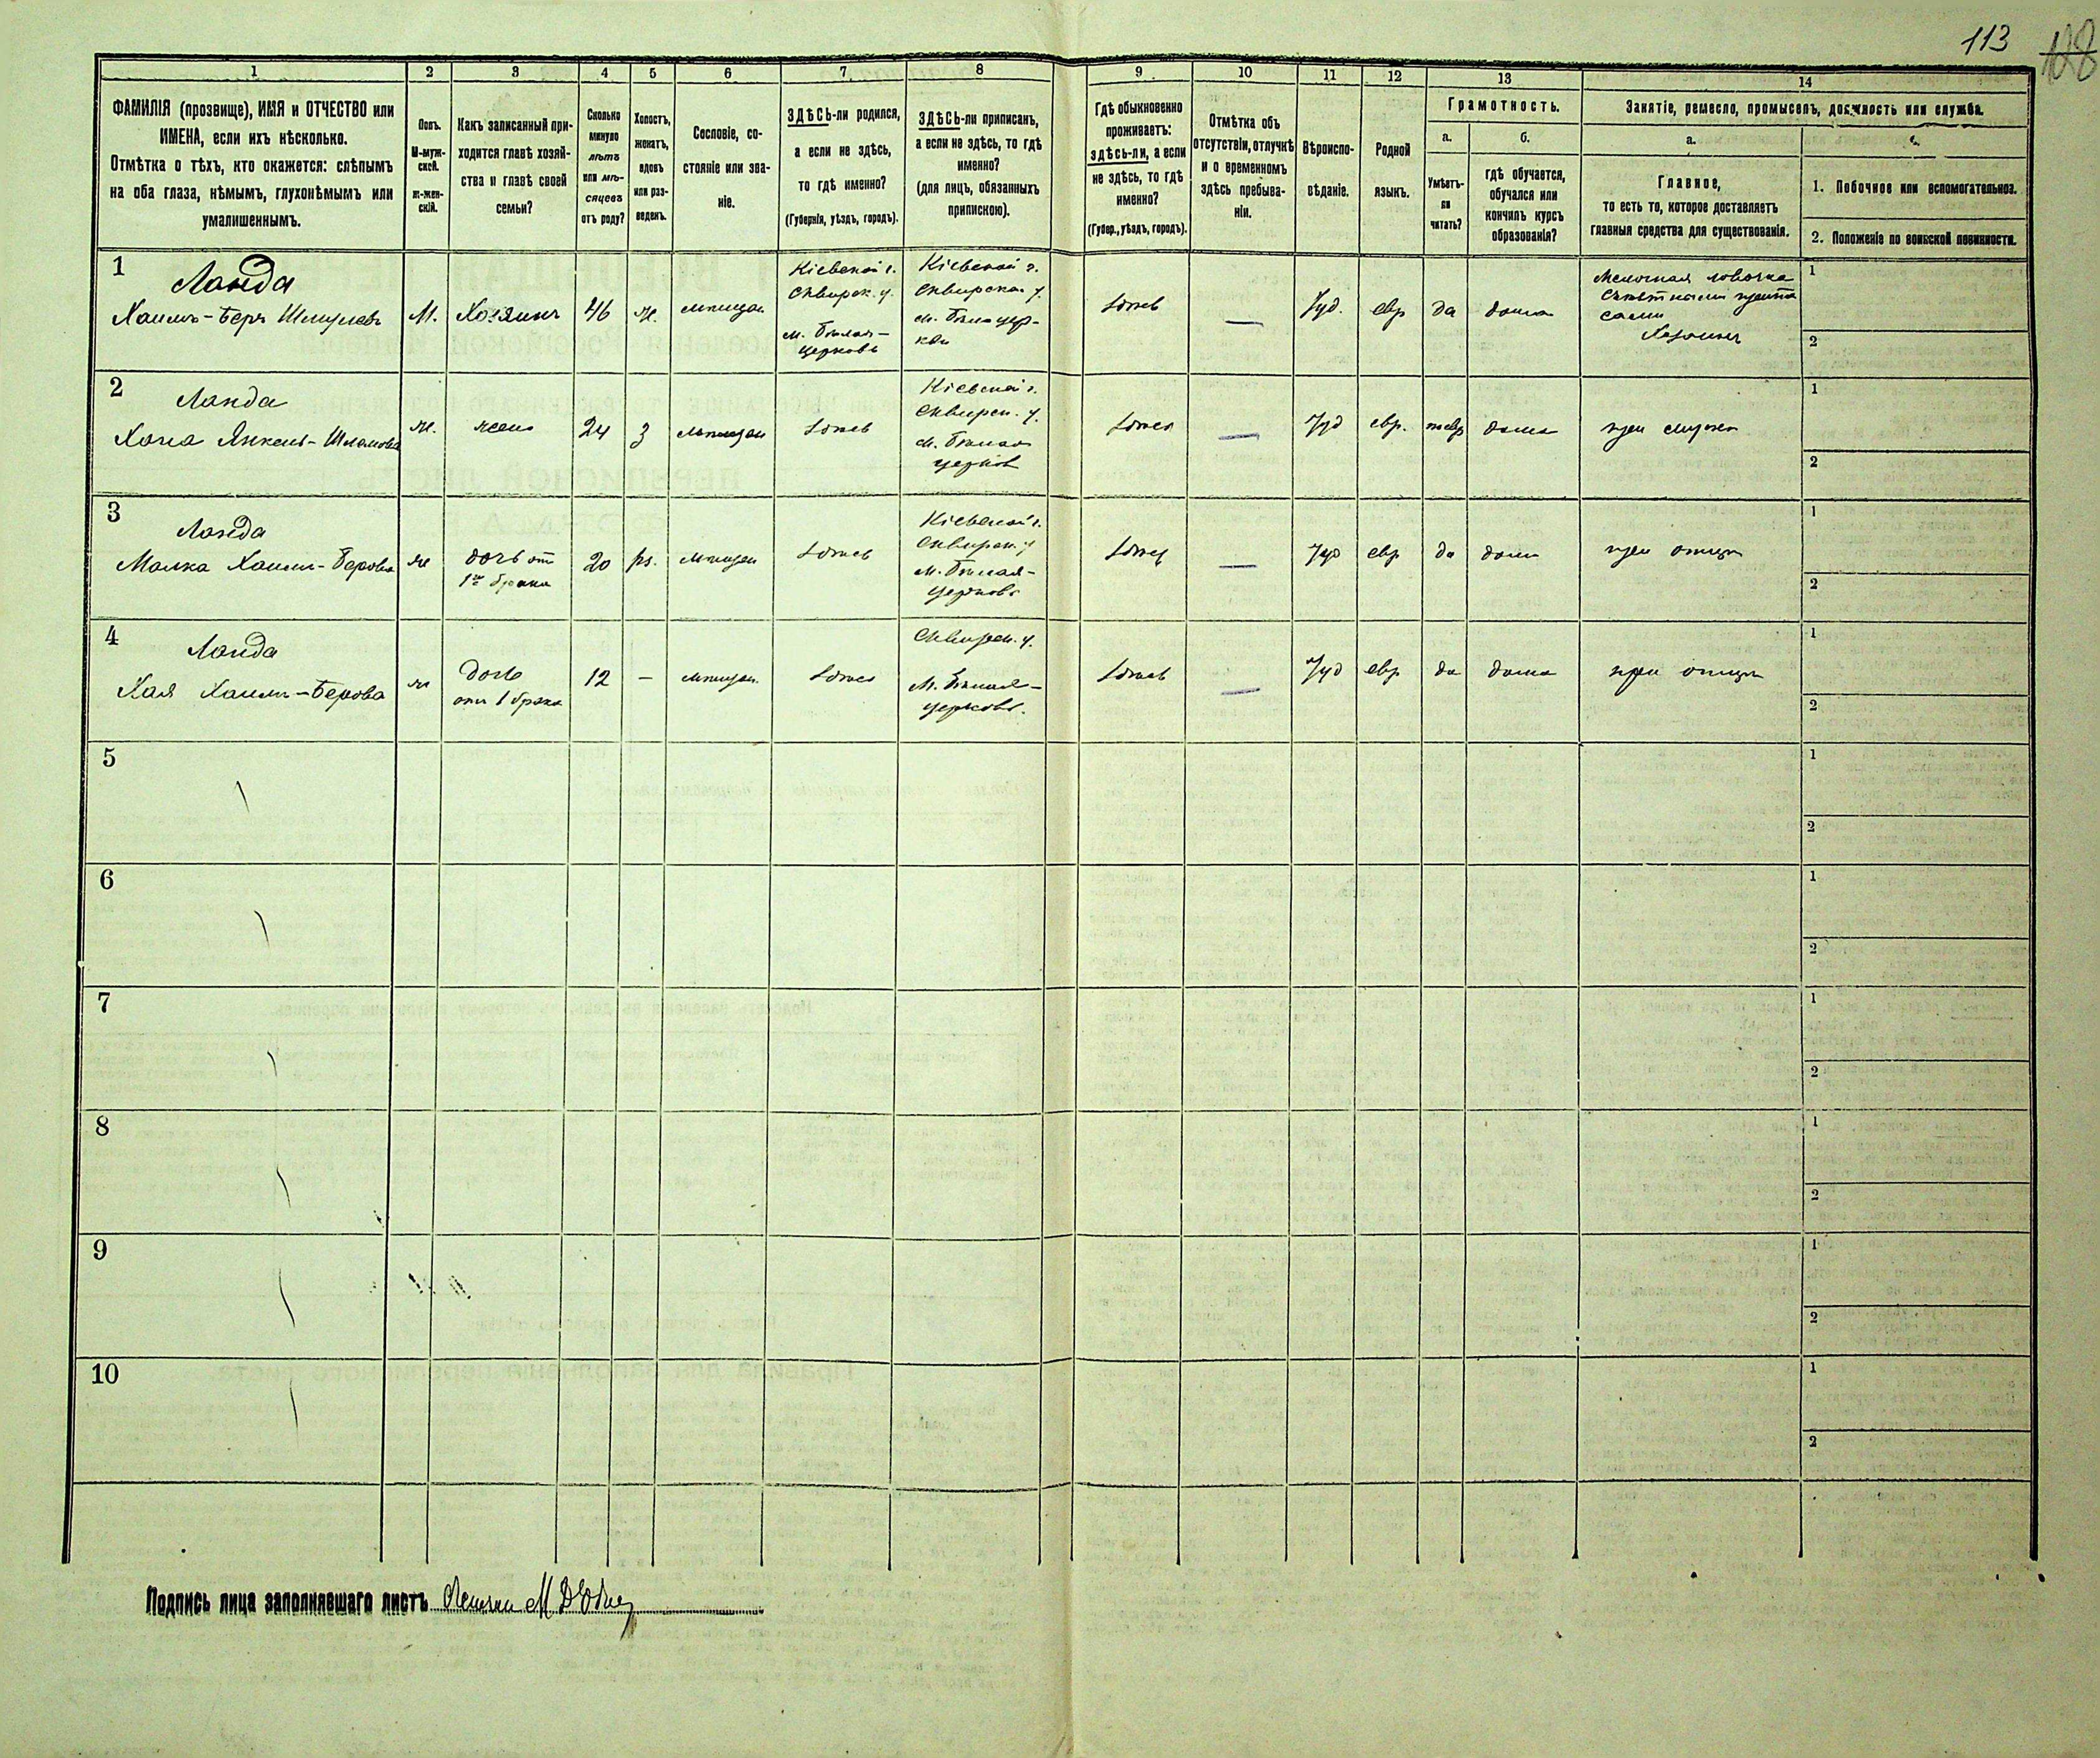 113
108
1 2 3 4 5 6 7 8 9 10 11 12 13 14
ФАМИЛІЯ (прозвище), ИМЯ и ОТЧЕСТВО или
ИМЕНА, если ихъ нѣсколько.
Отмѣтка о тѣхъ, кто окажется: слѣпымъ
на оба глаза, нѣмымъ, глухонѣмымъ или
умалишеннымъ.
Полъ.
М-муж-
ской.
ж-жен-
скій.
Какъ записанный при-
ходится главѣ хозяй-
ства и главѣ своей
семьи?
Сколько
минуло
лѣтъ
или мѣ-
сяцевъ
отъ роду?
Холостъ,
женатъ,
вдовъ
или раз-
веденъ.
Сословіе, со-
стояніе или зва-
ніе.
ЗДѢСЬ-ли родился,
а если не здѣсь,
то гдѣ именно?
(Губернія, уѣздъ, городъ).
ЗДѢСЬ-ли приписанъ,
а если не здѣсь, то гдѣ
именно?
(для лицъ, обязанныхъ
припискою).
Гдѣ обыкновенно
проживаетъ:
здѣсь-ли, а если
не здѣсь, то гдѣ
именно?
(Губер., уѣздъ, городъ).
Отмѣтка объ
отсутствіи, отлучкѣ
и о временномъ
здѣсь пребыва-
ніи.
Вѣроиспо-
вѣданіе.
Родной
языкъ.
Грамотность.
а.
Умѣетъ-
ли
читать?
б.
гдѣ обучается,
обучался или
кончилъ курсъ
образованія?
Занятіе, ремесло, промыселъ, должность или служба.
а.
Главное,
то есть то, которое доставляетъ
главныя средства для существованія.
1. Побочное или вспомогательное.
2. Положеніе по воинской повинности.
1
Ланда
Хаимъ-Беръ Шмулевъ
М.
Хозяинъ
46
ж.
мѣщан
Кіевской г.
Сквирск. у.
м. Бѣлая-
церковь
Кіевской г.
Сквирска у.
м. Бѣлацер-
кви
здѣсь
—
Іуд.
евр
да
дома
Мелочная
Хозяинъ
1
2
2
Ланда
Хана Янкель-Шлемова
ж.
жена
24
з
мѣщан
здѣсь
Кіевской г.
Сквирск. у.
м. Бѣлая
церков
здѣсь
—
Іуд
евр.
дома
при мужѣ
1
2
3
Ланда
Малка Хаимъ-Берова
ж
дочь от
1го брака
20
мѣщан
здѣсь
Кіевской г.
Сквирск. у
м. Бѣлая-
церковь
здѣсь
—
Іуд
евр
да
дома
при отцѣ
1
2
4
Ланда
Хая Хаимъ-Берова
ж
дочь
отъ 1 брака
12
—
мѣщан.
здѣсь
Сквирск. у.
М. Бѣлая-
церковь.
здѣсь
—
Іуд
евр
да
дома
при отцѣ
1
2
5
1
2
6
1
2
7
1
2
8
1
2
9
1
2
10
1
2
Подпись лица заполнявшаго листъ